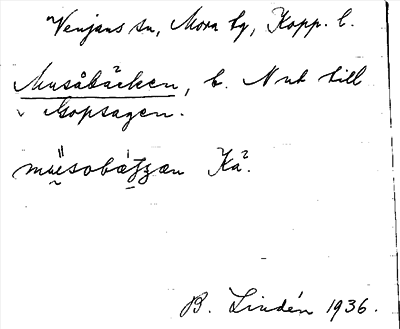 Venjans sn, Mora tg, Kopp. l.
Musåbäcken, b. N ut till
Gopsagen.
müsobäʃʒæn Ka².
B. Lindén 1936.